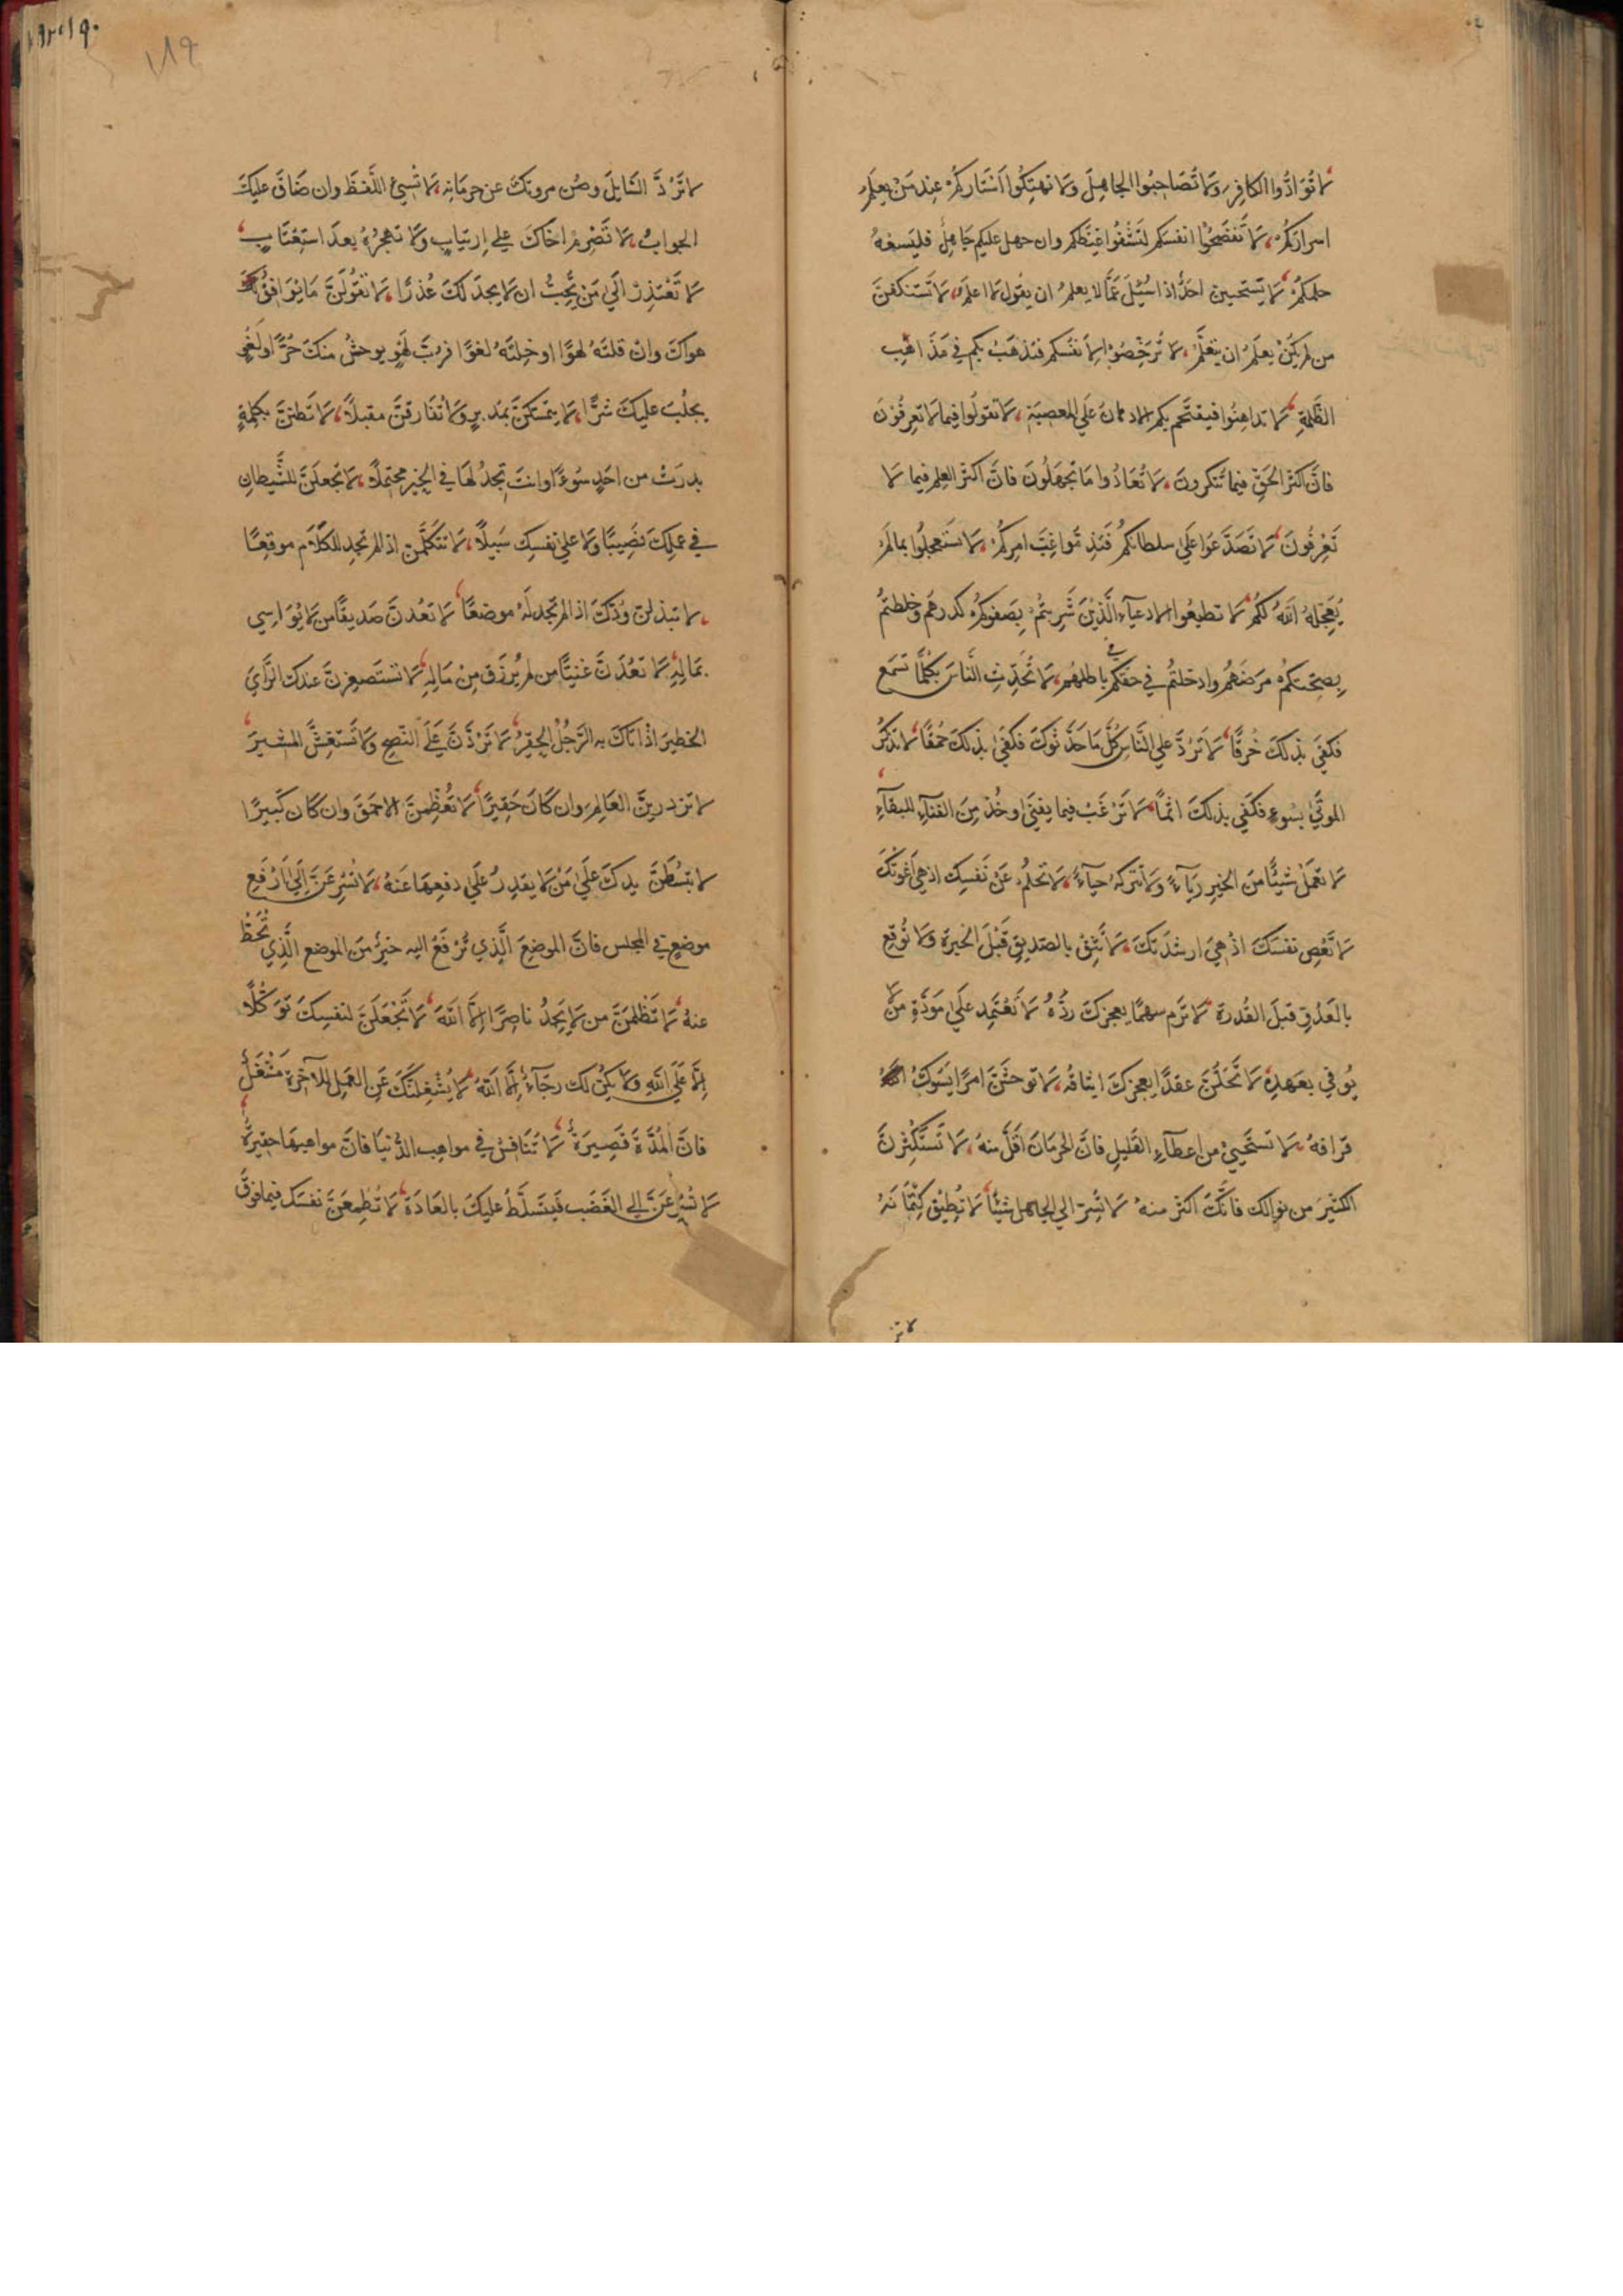 لا تُوَادُّوا الكافِرَ وَلا تُصَاحِبُوا الجاهِلَ وَلا تهتِكُوا اَسْتَاركُمْ عِندَ مَنْ يعلَمُ
اسرارَكُمْ، لَا تَفضَحُوا انفسَكم لتَشْفُوا غَيْظكم وان جهل عليكم جَاهِلٌ فليَسعْهُ
حلمكُمْ، لَا يَستحيين احَدٌ اذا سُئِلَ عَمَّا لا يعلمُ ان يقول لا اعلم، لَا تَستنكفنَّ
من لم يكُنْ يعلَمُ ان يتعَلَّمَ، لَا تُرَخِّصُوا لِاَنفسكم فتذهَبَ بكم في مَذَاهِب
الظَّلمةِ، لَا تداهِنُوا فيقتَحم بكم الادهانُ عَلَي المعصِيَةِ، لا تقولُوا فيما لا تعرِفُوْنَ
فانَّ اَكثرَ الحَقِّ فيما تُنكِرونَ، لَا تُعَادُوا مَا تَجهَلُونَ فانَّ اكثرَ العِلمِ فيما لَا
تَعْرِفُونَ، لَا تصَدَّعُوا عَلَي سلطانكُم فَتَذِمُّوا غِبَّ امرِكُم، لَا تستَعجِلُوا بمالَمْ
يُعَجِّلهُ اللهُ لكُم، لَا تطيعُوا الادعيَآءَ الَّذِيْنَ شَرِبتُمْ بِصَفوِكُم كدرهَم وَخلطتُم
بِصِحَّتكُمْ مرَضَهُم وادخلتُم في حقكم باطلهُم، لَا تُحَدِّثِ النَّاسَ بكُلّمَا تسمَع
فكفَي بذلكَ خُرقًا، لَا تَرُدَّ علي النَّاسِ كُلَّ مَا حَدَّثُوكَ فكفَي بذلكَ حُمقًا، لا تذكُر
الموتَي بسُوءٍ فكفَي بذلكَ اثمًا، لَا تَرْغَبْ فيما يفنَي وخُذْ مِنَ الفنآءِ للبقآءِ
لَا تعمَلْ شيئًا منَ الخيرِ ريآءً وَلَا تتركهُ حيآءً، لَا تحلُم عَنْ نَفسِكَ اذ هي اَغوتكَ
لَا تَعْصِ نفسَكَ اذْ هِيَ ارشدَتكَ، لَا تَثِقْ بالصّديقِ قَبْلَ الخبرةِ وَلَا تُوقِعْ
بالعَدُوِّ قبلَ القُدرَةِ، لَا تَرْمِ سهمًا يعجزكَ ردُّهُ لَا تَعْتَمِد عَلَي مَودَّةِ مَنْ لَا
يُوفي بعَهدِهِ، لَا تَحُلَّنَّ عقدًا يعجزكَ ايثاقُه، لَا تُوحشَنَّ امرًا يَسُوكَ
فراقهُ، لَا تستَحييْ من اعطآءِ القَليلِ فانَّ الحرمَانَ اَقَلُّ منهُ، لَا تَستَكثِرنَّ
الكثيرَ من نوالك فانَّكَ اكثرُ منهُ، لَا تُسِرَّ الي الجاهل شيئًا لَا يُطِيْق كِتْمَانَهُ
لا تر
لا تَرُدَّ السَّايلَ وصُن مروتكَ عن حرمَانِه، لَا تُسئِ اللَّفظَ وان ضَاقَ عليكَ
الجوابُ، لَا تَصْرِمْ اخَاكَ علي اِرتيابٍ وَلَا تهجُرْهُ بعدَ استِعْتَابٍ،
لَا تَعْتَذِرْ الَي مَنْ يُحِبُّ ان لَا يجدَ لكَ عُذرًا، لَا تقُولَنَّ مَا يُوَافِقُ
هواكَ وانْ قلتَهُ لهوًا او خِلتَهُ لغوًا فرُبَّ لَهْوٍ يوحشُ منكَ حُرًّا ولغْوٍ
يجلُبُ عليكَ شرًّا، لَا يتمسّكنَّ بمُدبرٍ وَلَا تُفَارقنَّ مقبلًا، لَا تَظننَّ بكلمةٍ
بدرَتْ من احَدٍ سُوءًا وانتَ تجدُ لهَا في الخيرِ محتملًا، لَا تجعلَنَّ للشَّيطانِ
في عملِكَ نَصِيبًا وَلَا علي نفسِكَ سَبيلًا، لَا تتكلّمَنَّ اذا لم تجدِ للكَلَامِ موقعًا
لا تبذلن ودّكَ اذا لم تجد لَهُ موضعًا، لَا تعُدنَّ صَديقًا من لَا يُوَاسِي
بمَالِهِ، لَا تعُدَنَّ غنيًّا من لم يُرزَق مِنْ مَالِهِ، لَا تستَصغِرنَّ عندكَ الرَّأيَ
الخطيرَ اذا اتاكَ بِه الرَّجُلُ الحقِيرُ، لَا تَرُدَّنَّ عَلَي النَّصِيحِ وَلَا تَستَغِشَّ المشيرَ
لا تزدرينَّ العَالِمَ وان كَانَ حَقِيرًا، لَا تعُظِّمنَّ الاحمَقَ وان كَان كَبيرًا
لا تبسُطَنَّ يدكَ عَلَي مَنْ لَا يقدِرُ عَلَي دفعِهَا عَنهُ، لَا تُسْرِعَنَّ اِلَي اَرْفَعِ
موضعٍ في المجلس فانَّ الموضِعَ الَّذِي تُرْفَعُ اليه خيرٌ منَ الموضعِ الَّذِي تُحَطُّ
عنهُ، لَا تَظْلمَنَّ من لَا يَجِدُ ناصِرًا اِلَّا اللهَ، لَا تَجْعَلَنَّ لنفسِكَ تَوَكُّلًا
اِلَّا عَلَي اللهِ وَلَا يكُن لك رجَآءٌ اِلَّا اللهُ، لَا يُشْغِلنَّكَ عَنِ العَمَلِ للآخِرَةِ شُغْلٌ
فانَّ المُدَّةَ قَصِيرَةٌ، لَا تَتَنَافَسْ في مواهِبِ الدُّنيَا فانَّ مواهبهَا حقِيرَةٌ،
لَا تُسْرِعَنَّ اِلي الغَضَبِ فَيتسلَّطَ عليكَ بالعَادَةِ، لَا تُطمِعَنَّ نفسَكَ فيما فوقَ